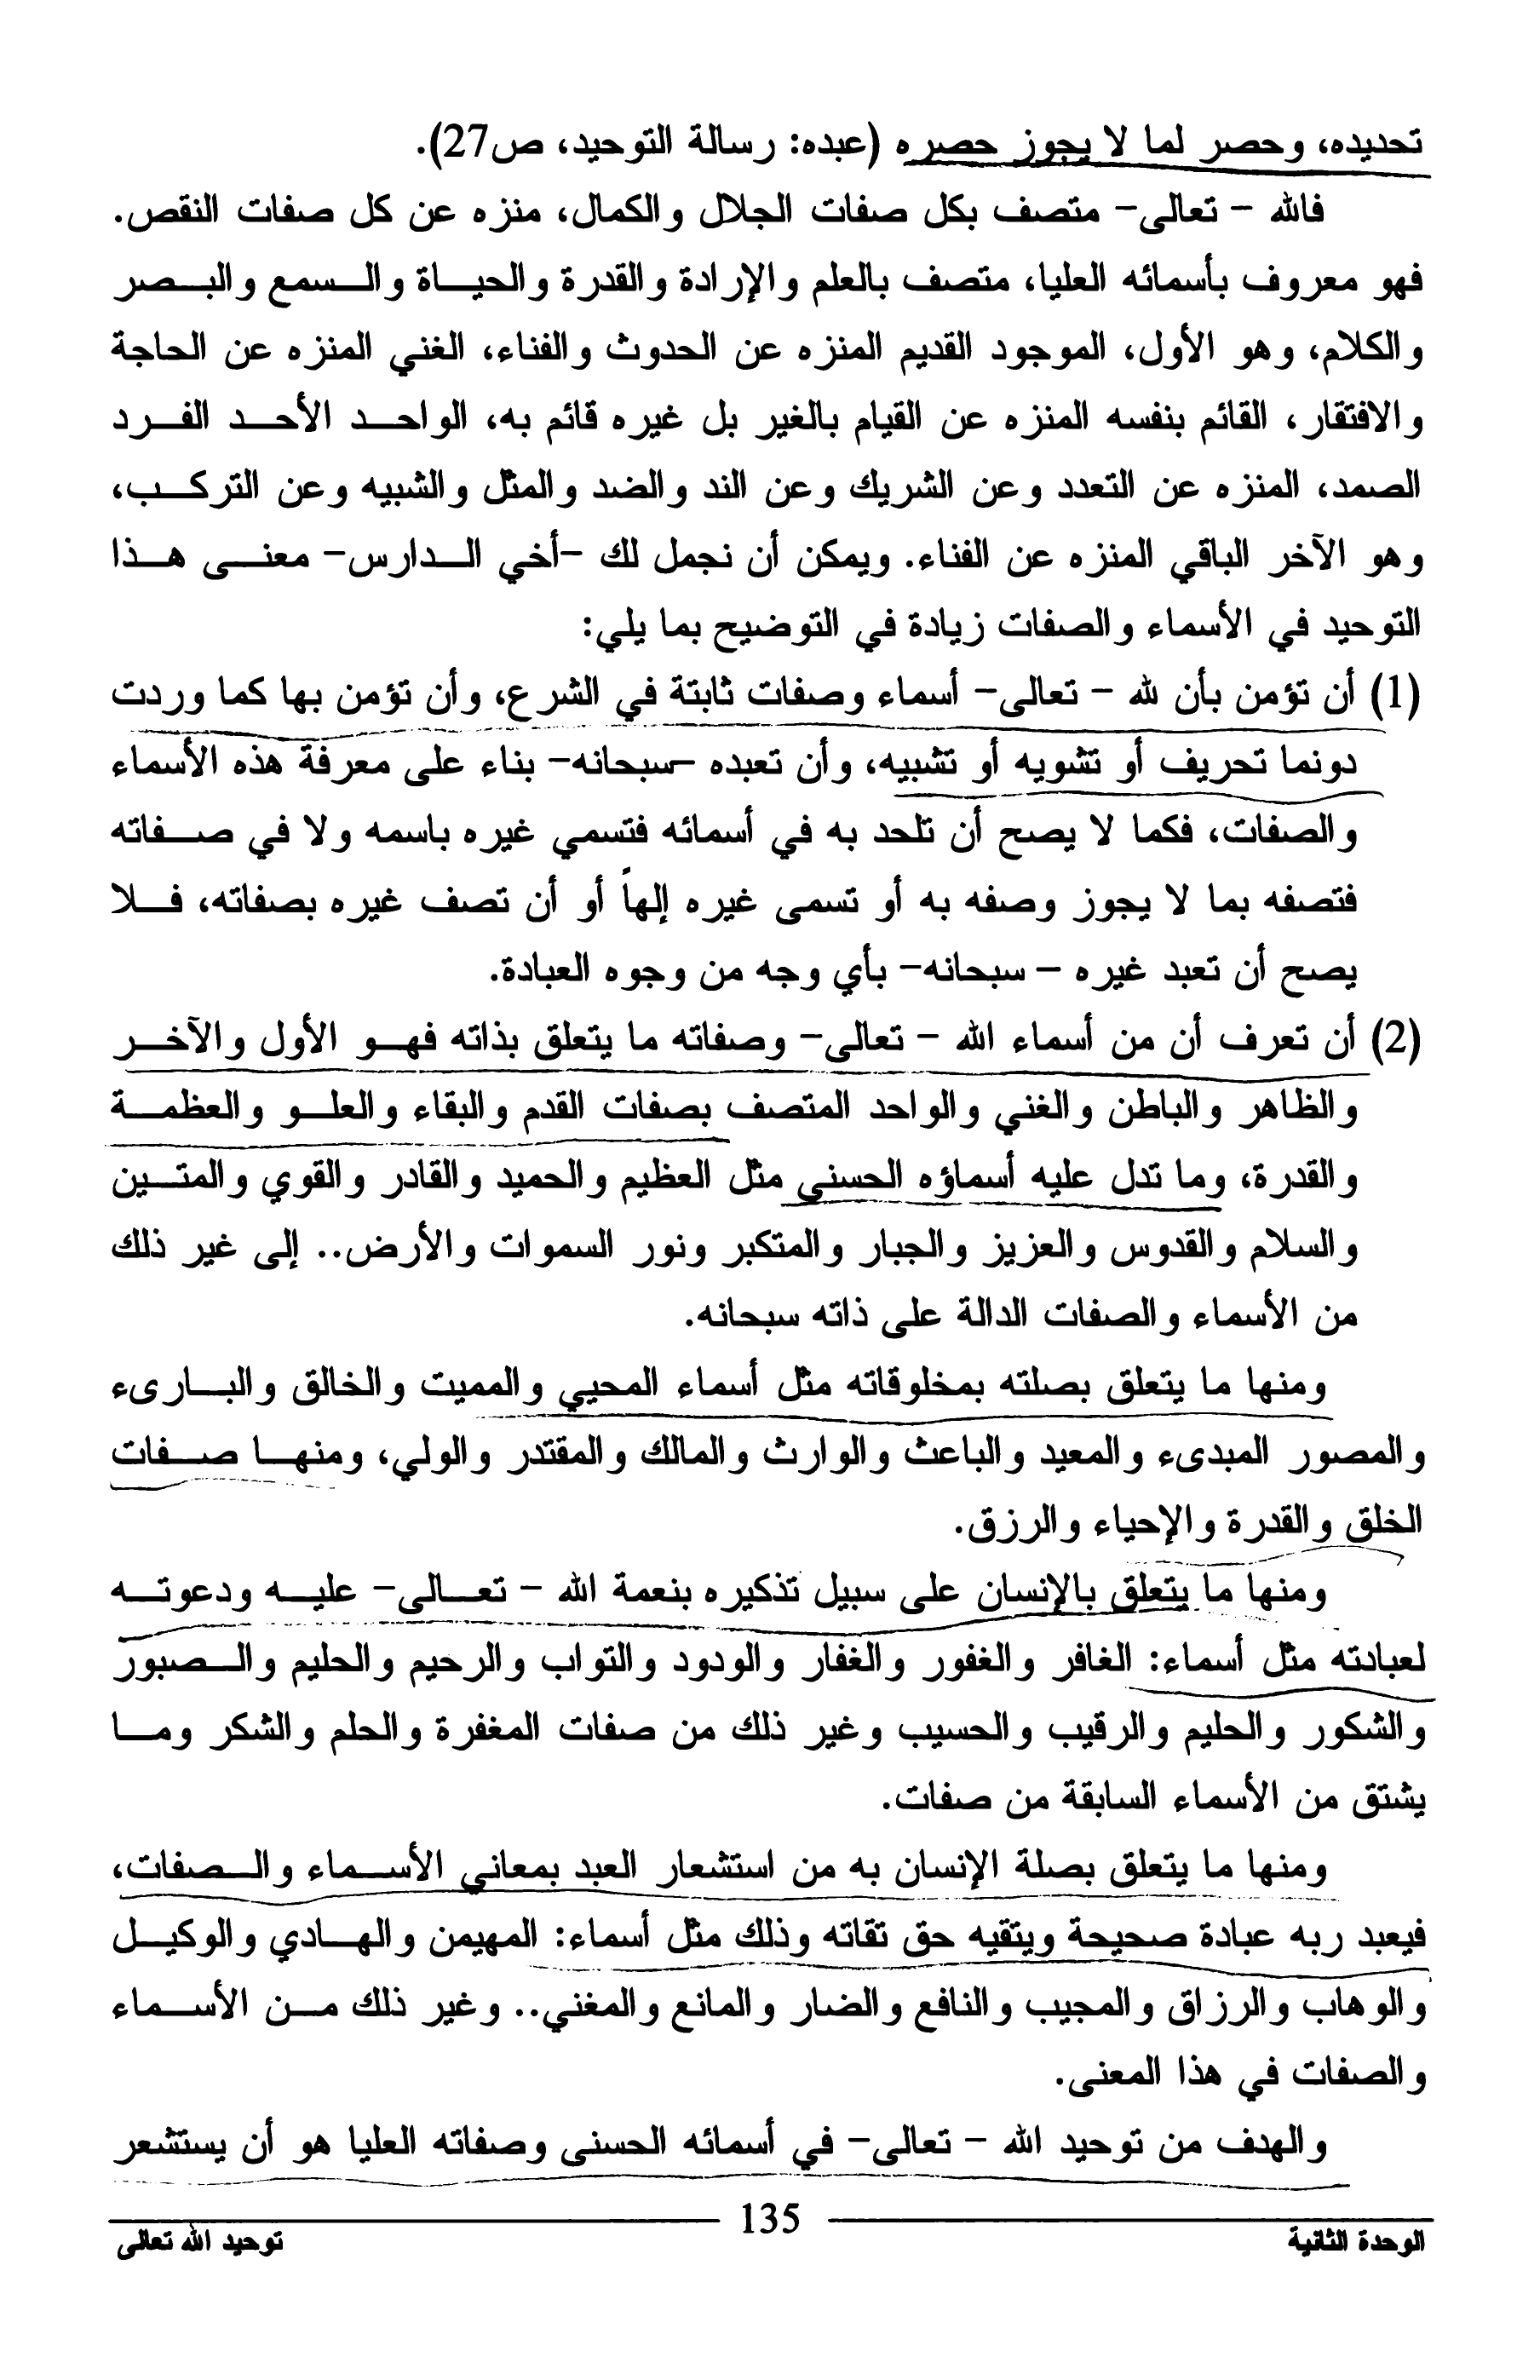 تحديده، وحصر لما لا يجوز حصره (عبده: رسالة التوحيد، ص27).
فالله - تعالى- متصف بكل صفات الجلال والكمال، منزه عن كل صفات النقص.
فهو معروف بأسمائه العليا، متصف بالعلم والإرادة والقدرة والحياة والسمع والبصر
والكلام، وهو الأول، الموجود القديم المنزه عن الحدوث والفناء، الغني المنزه عن الحاجة
والافتقار، القائم بنفسه المنزه عن القيام بالغير بل غيره قائم به، الواحد الأحد الفرد
الصمد، المنزه عن التعدد وعن الشريك وعن الند والضد والمثل والشبيه وعن التركب،
وهو الآخر الباقي المنزه عن الفناء. ويمكن أن نجمل لك -أخي الدارس- معنى هذا
التوحيد في الأسماء والصفات زيادة في التوضيح بما يلي:
(1) أن تؤمن بأن لله - تعالى- أسماء وصفات ثابتة في الشرع، وأن تؤمن بها كما وردت
دونما تحريف أو تشويه أو تشبيه، وأن تعبده -سبحانه- بناء على معرفة هذه الأسماء
والصفات، فكما لا يصح أن تلحد به في أسمائه فتسمي غيره باسمه ولا في صفاته
فتصفه بما لا يجوز وصفه به أو تسمى غيره إلهاً أو أن تصف غيره بصفاته، فلا
يصح أن تعبد غيره - سبحانه- بأي وجه من وجوه العبادة.
(2) أن تعرف أن من أسماء الله - تعالى- وصفاته ما يتعلق بذاته فهو الأول والآخر
والظاهر والباطن والغني والواحد المتصف بصفات القدم والبقاء والعلو والعظمة
والقدرة، وما تدل عليه أسماؤه الحسنى مثل العظيم والحميد والقادر والقوي والمتين
والسلام والقدوس والعزيز والجبار والمتكبر ونور السموات والأرض.. إلى غير ذلك
من الأسماء والصفات الدالة على ذاته سبحانه.
ومنها ما يتعلق بصلته بمخلوقاته مثل أسماء المحيي والمميت والخالق والبارىء
والمصور المبدىء والمعيد والباعث والوارث والمالك والمقتدر والولي، ومنها صفات
الخلق والقدرة والإحياء والرزق.
ومنها ما يتعلق بالإنسان على سبيل تذكيره بنعمة الله - تعالى- عليه ودعوته
لعبادته مثل أسماء: الغافر والغفور والغفار والودود والتواب والرحيم والحليم والصبور
والشكور والحليم والرقيب والحسيب وغير ذلك من صفات المغفرة والحلم والشكر وما
يشتق من الأسماء السابقة من صفات.
ومنها ما يتعلق بصلة الإنسان به من استشعار العبد بمعاني الأسماء والصفات،
فيعبد ربه عبادة صحيحة ويتقيه حق تقاته وذلك مثل أسماء: المهيمن والهادي والوكيل
والوهاب والرزاق والمجيب والنافع والضار والمانع والمغني.. وغير ذلك من الأسماء
والصفات في هذا المعنى.
والهدف من توحيد الله - تعالى- في أسمائه الحسنى وصفاته العليا هو أن يستشعر
135
الوحدة الثانية
توحيد الله تعالى